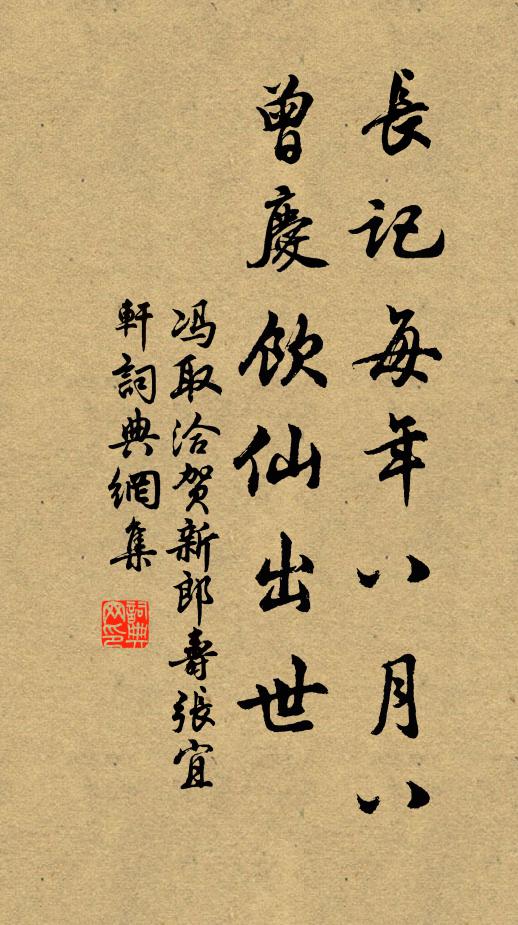 長記每年八月八
曾慶飲仙出世
冯取洽贺新郎壽張宜
軒詞典網集
詞典網印